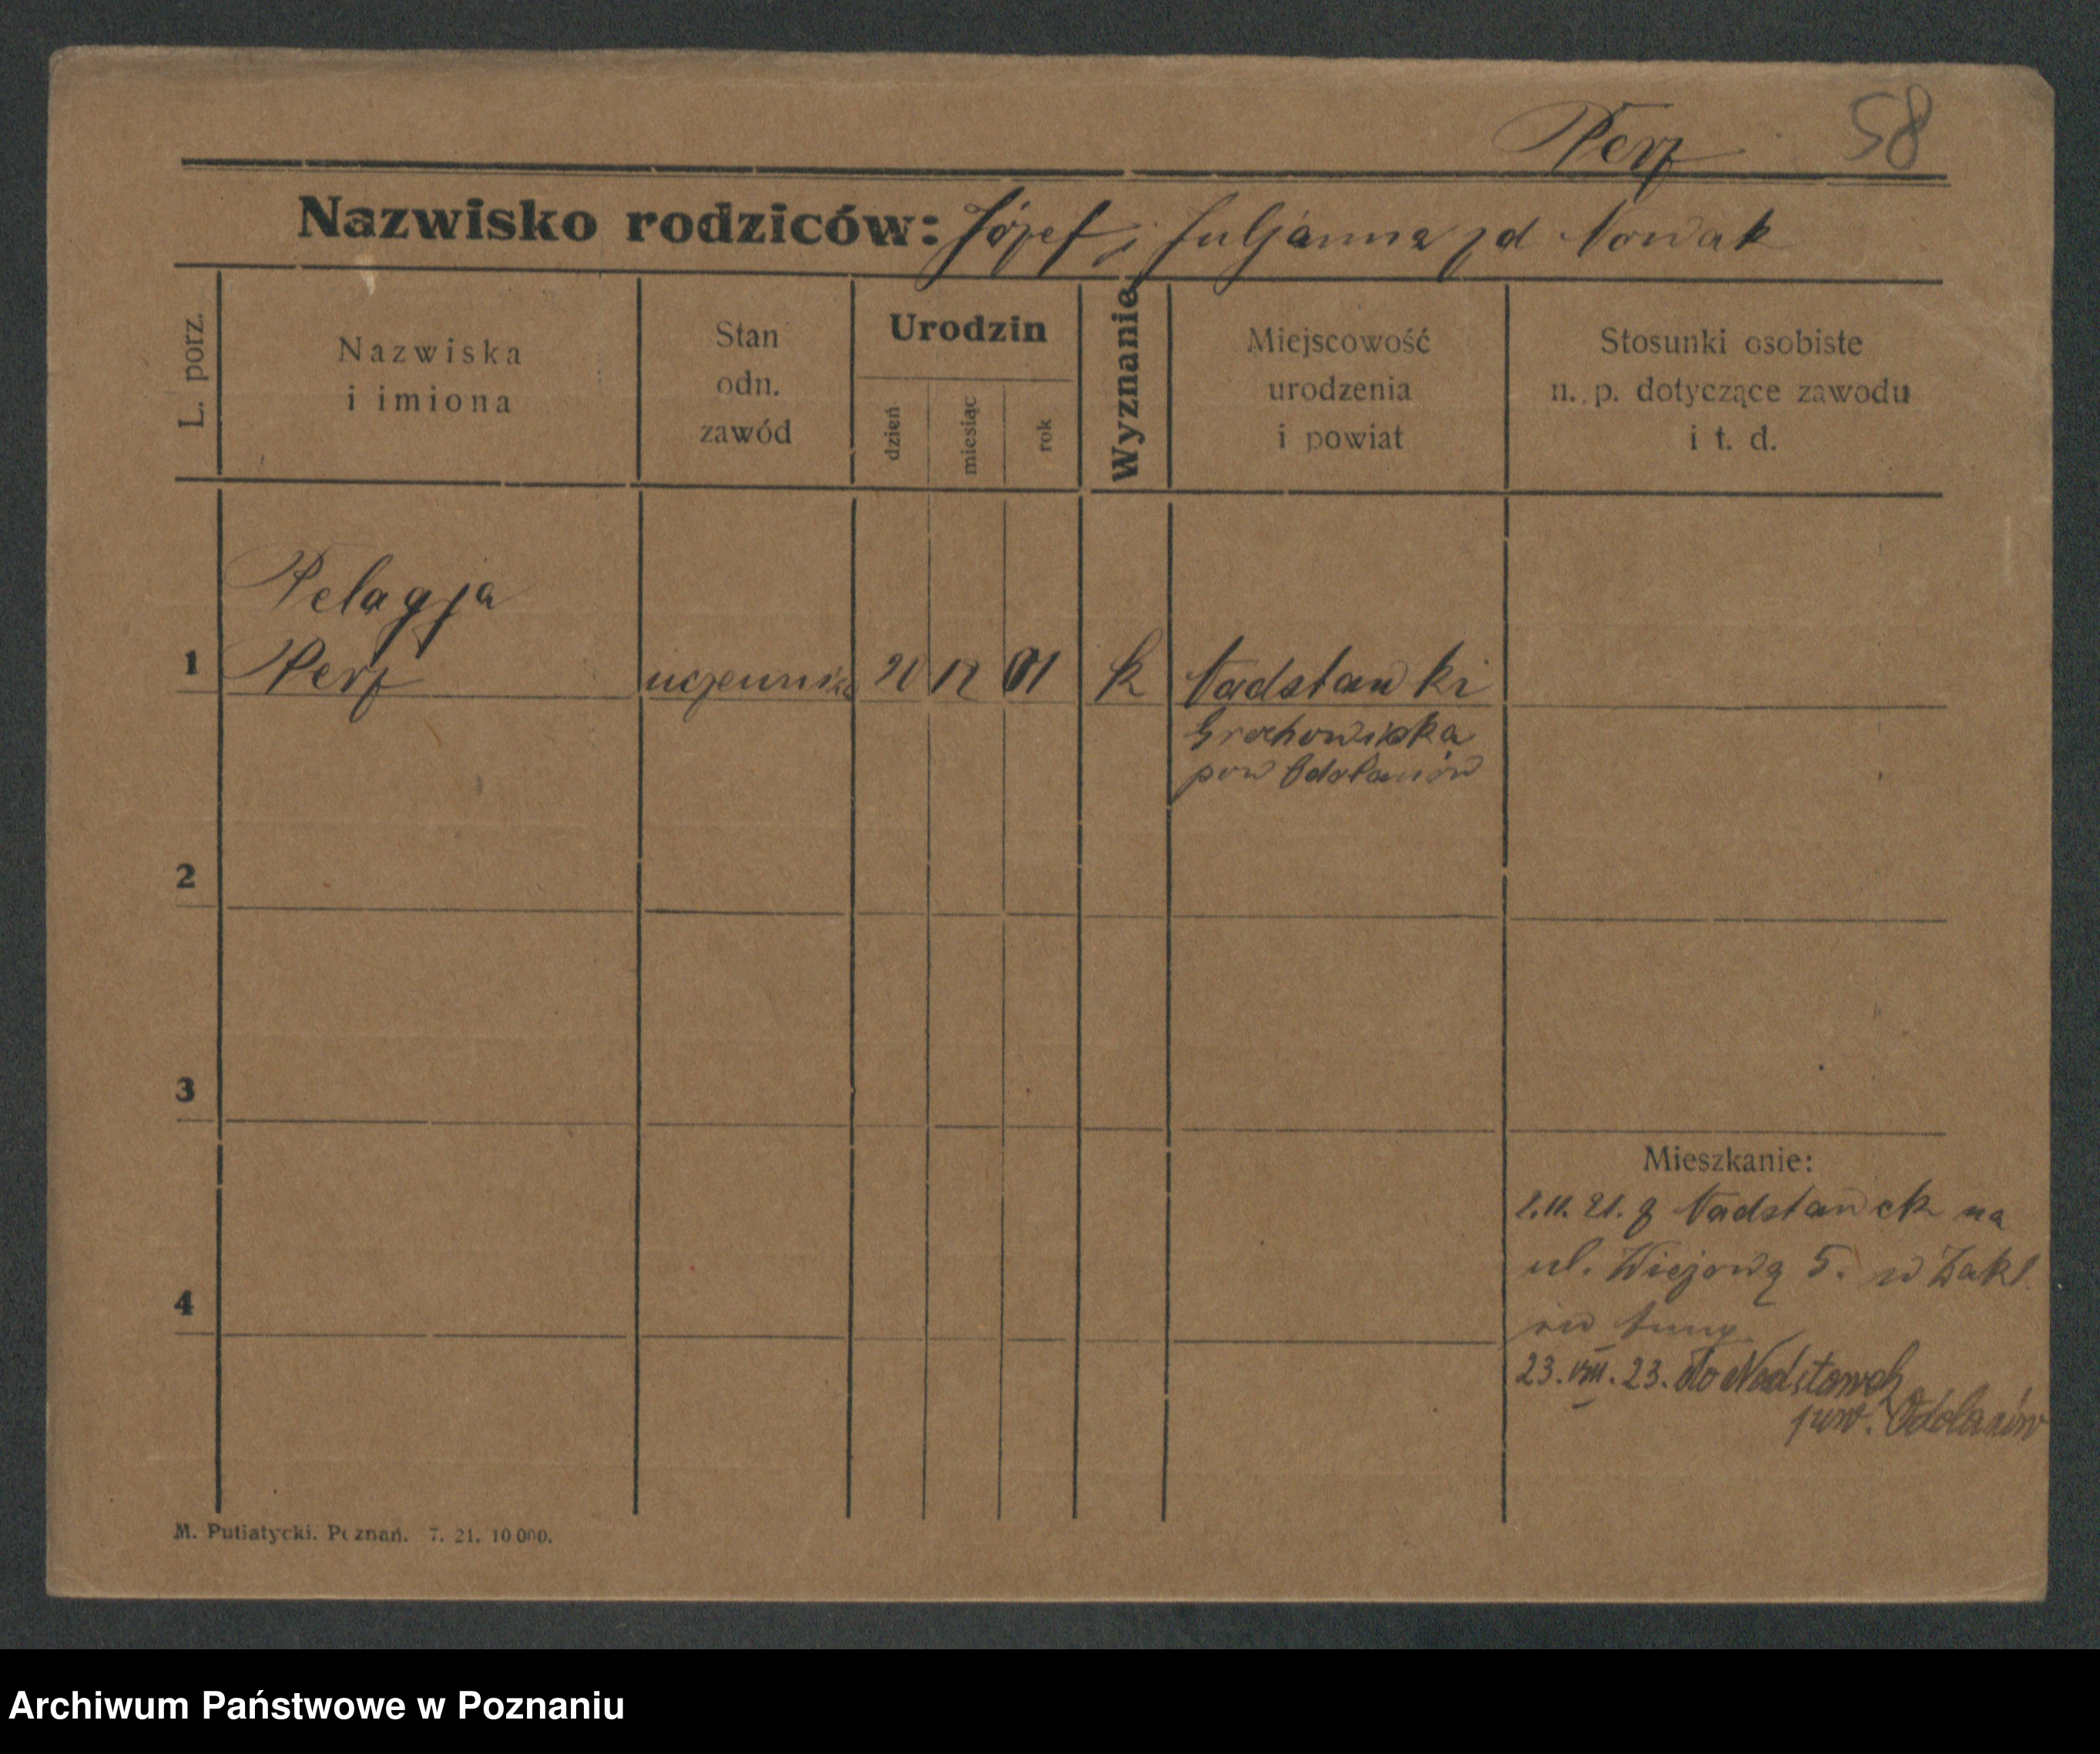 Perz 58
Nazwisko rodziców: Józef i Juljanna zd Nowak
L. porz.
Nazwiska
i imiona
Stan
odn.
zawód
Urodzin
dzień
miesiąc
rok
Wyznanie
Miejscowość
urodzenia
i powiat
Stosunki osobiste
n. p. dotyczące zawodu
i t. d.
Pelagja
1 Perz uczennica 20 12 01 k Nadstawki
Grochowiska
pow Odolanów
2
3
Mieszkanie:
2.11.21. z Nadstawek na
ul. Wiejową 5. w Zakł.
4
23.VIII.23. do Nadstawek
pow. Odolanów
M. Putiatycki. Poznań. 7. 21. 10 000.
Archiwum Państwowe w Poznaniu